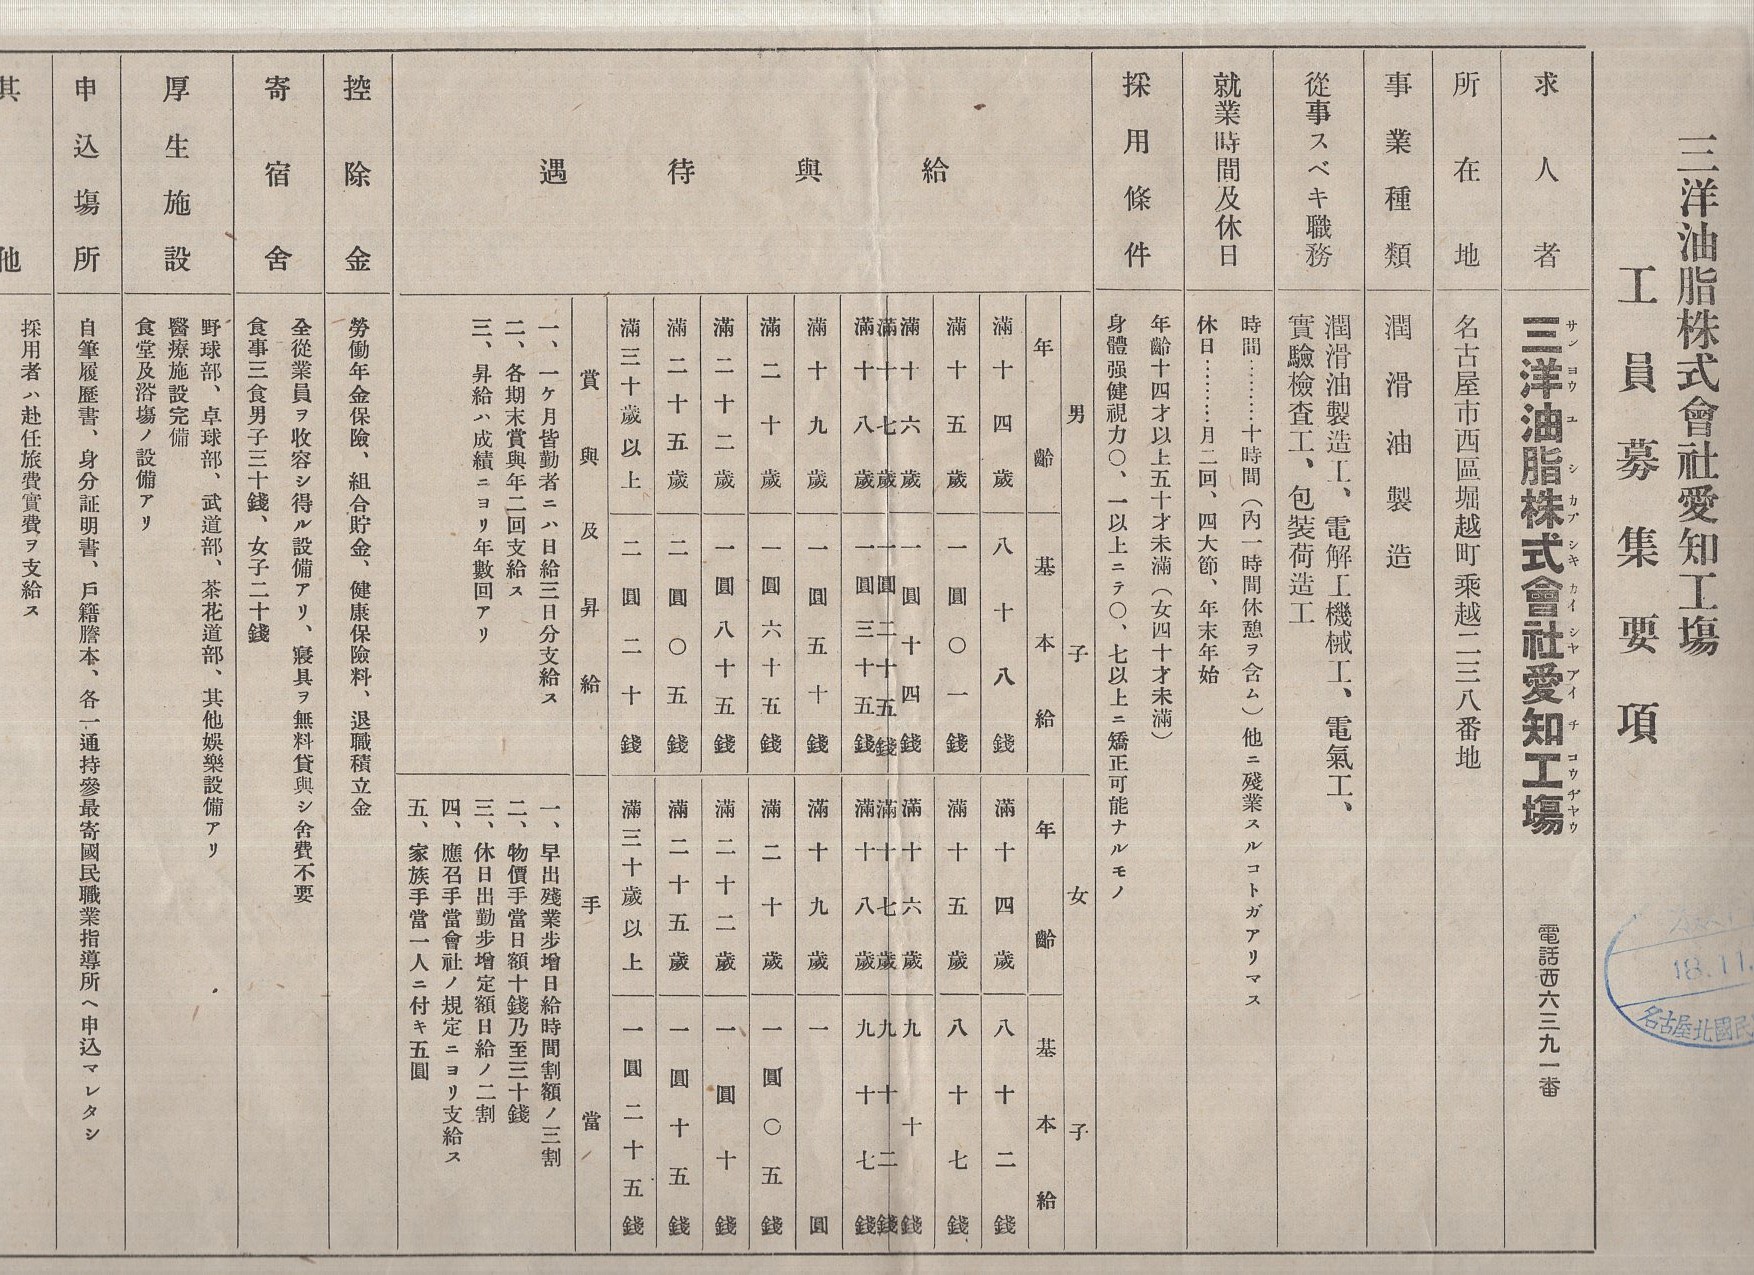 三洋油脂株式會社愛知工塲
工員募集要項
求人者
三洋油脂株式會社愛知工塲
サンヨウユシカブシキカイシヤアイチコウヂヤウ
電話西六三九一番
所在地
名古屋市西區堀越町乘越二三八番地
事業種類
潤滑油製造
從事スベキ職務
潤滑油製造工、電解工機械工、電氣工、
實驗檢査工、包装荷造工
就業時間及休日
時間………十時間（內一時間休憩ヲ含ム）他ニ殘業スルコトガアリマス
休日………月二回、四大節、年末年始
採用條件
年齡十四才以上五十才未滿（女四十才未滿）
身體强健視力〇、一以上ニテ〇、七以上ニ矯正可能ナルモノ
給與待遇
男子
年齡
基本給
滿十四歲
八十八錢
滿十五歲
一圓〇一錢
滿十六歲
一圓十四錢
滿十七歲
一圓二十五錢
滿十八歲
一圓三十五錢
滿十九歲
一圓五十錢
滿二十歲
一圓六十五錢
滿二十二歲
一圓八十五錢
滿二十五歲
二圓〇五錢
滿三十歲以上
二圓二十錢
女子
年齡
基本給
滿十四歲
八十二錢
滿十五歲
八十七錢
滿十六歲
九十錢
滿十七歲
九十二錢
滿十八歲
九十七錢
滿十九歲
一圓
滿二十歲
一圓〇五錢
滿二十二歲
一圓十錢
滿二十五歲
一圓十五錢
滿三十歲以上
一圓二十五錢
賞與及昇給
一、一ケ月皆勤者ニハ日給三日分支給ス
二、各期末賞與年二回支給ス
三、昇給ハ成績ニヨリ年數回アリ
手當
一、早出殘業步增日給時間割額ノ三割
二、物價手當日額十錢乃至三十錢
三、休日出勤步增定額日給ノ二割
四、應召手當會社ノ規定ニヨリ支給ス
五、家族手當一人ニ付キ五圓
控除金
勞働年金保險、組合貯金、健康保險料、退職積立金
寄宿舍
全從業員ヲ收容シ得ル設備アリ、寢具ヲ無料貸與シ舍費不要
食事三食男子三十錢、女子二十錢
厚生施設
野球部、卓球部、武道部、茶花道部、其他娛樂設備アリ
醫療施設完備
食堂及浴塲ノ設備アリ
申込塲所
自筆履歷書、身分証明書、戶籍謄本、各一通持參最寄國民職業指導所ヘ申込マレタシ
其他
採用者ハ赴任旅費實費ヲ支給ス
18.11.
名古屋北國民